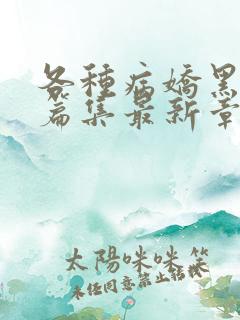 各種病嬌黑
篇集最新章
太陽咪咪笑
未任同意禁止轉載